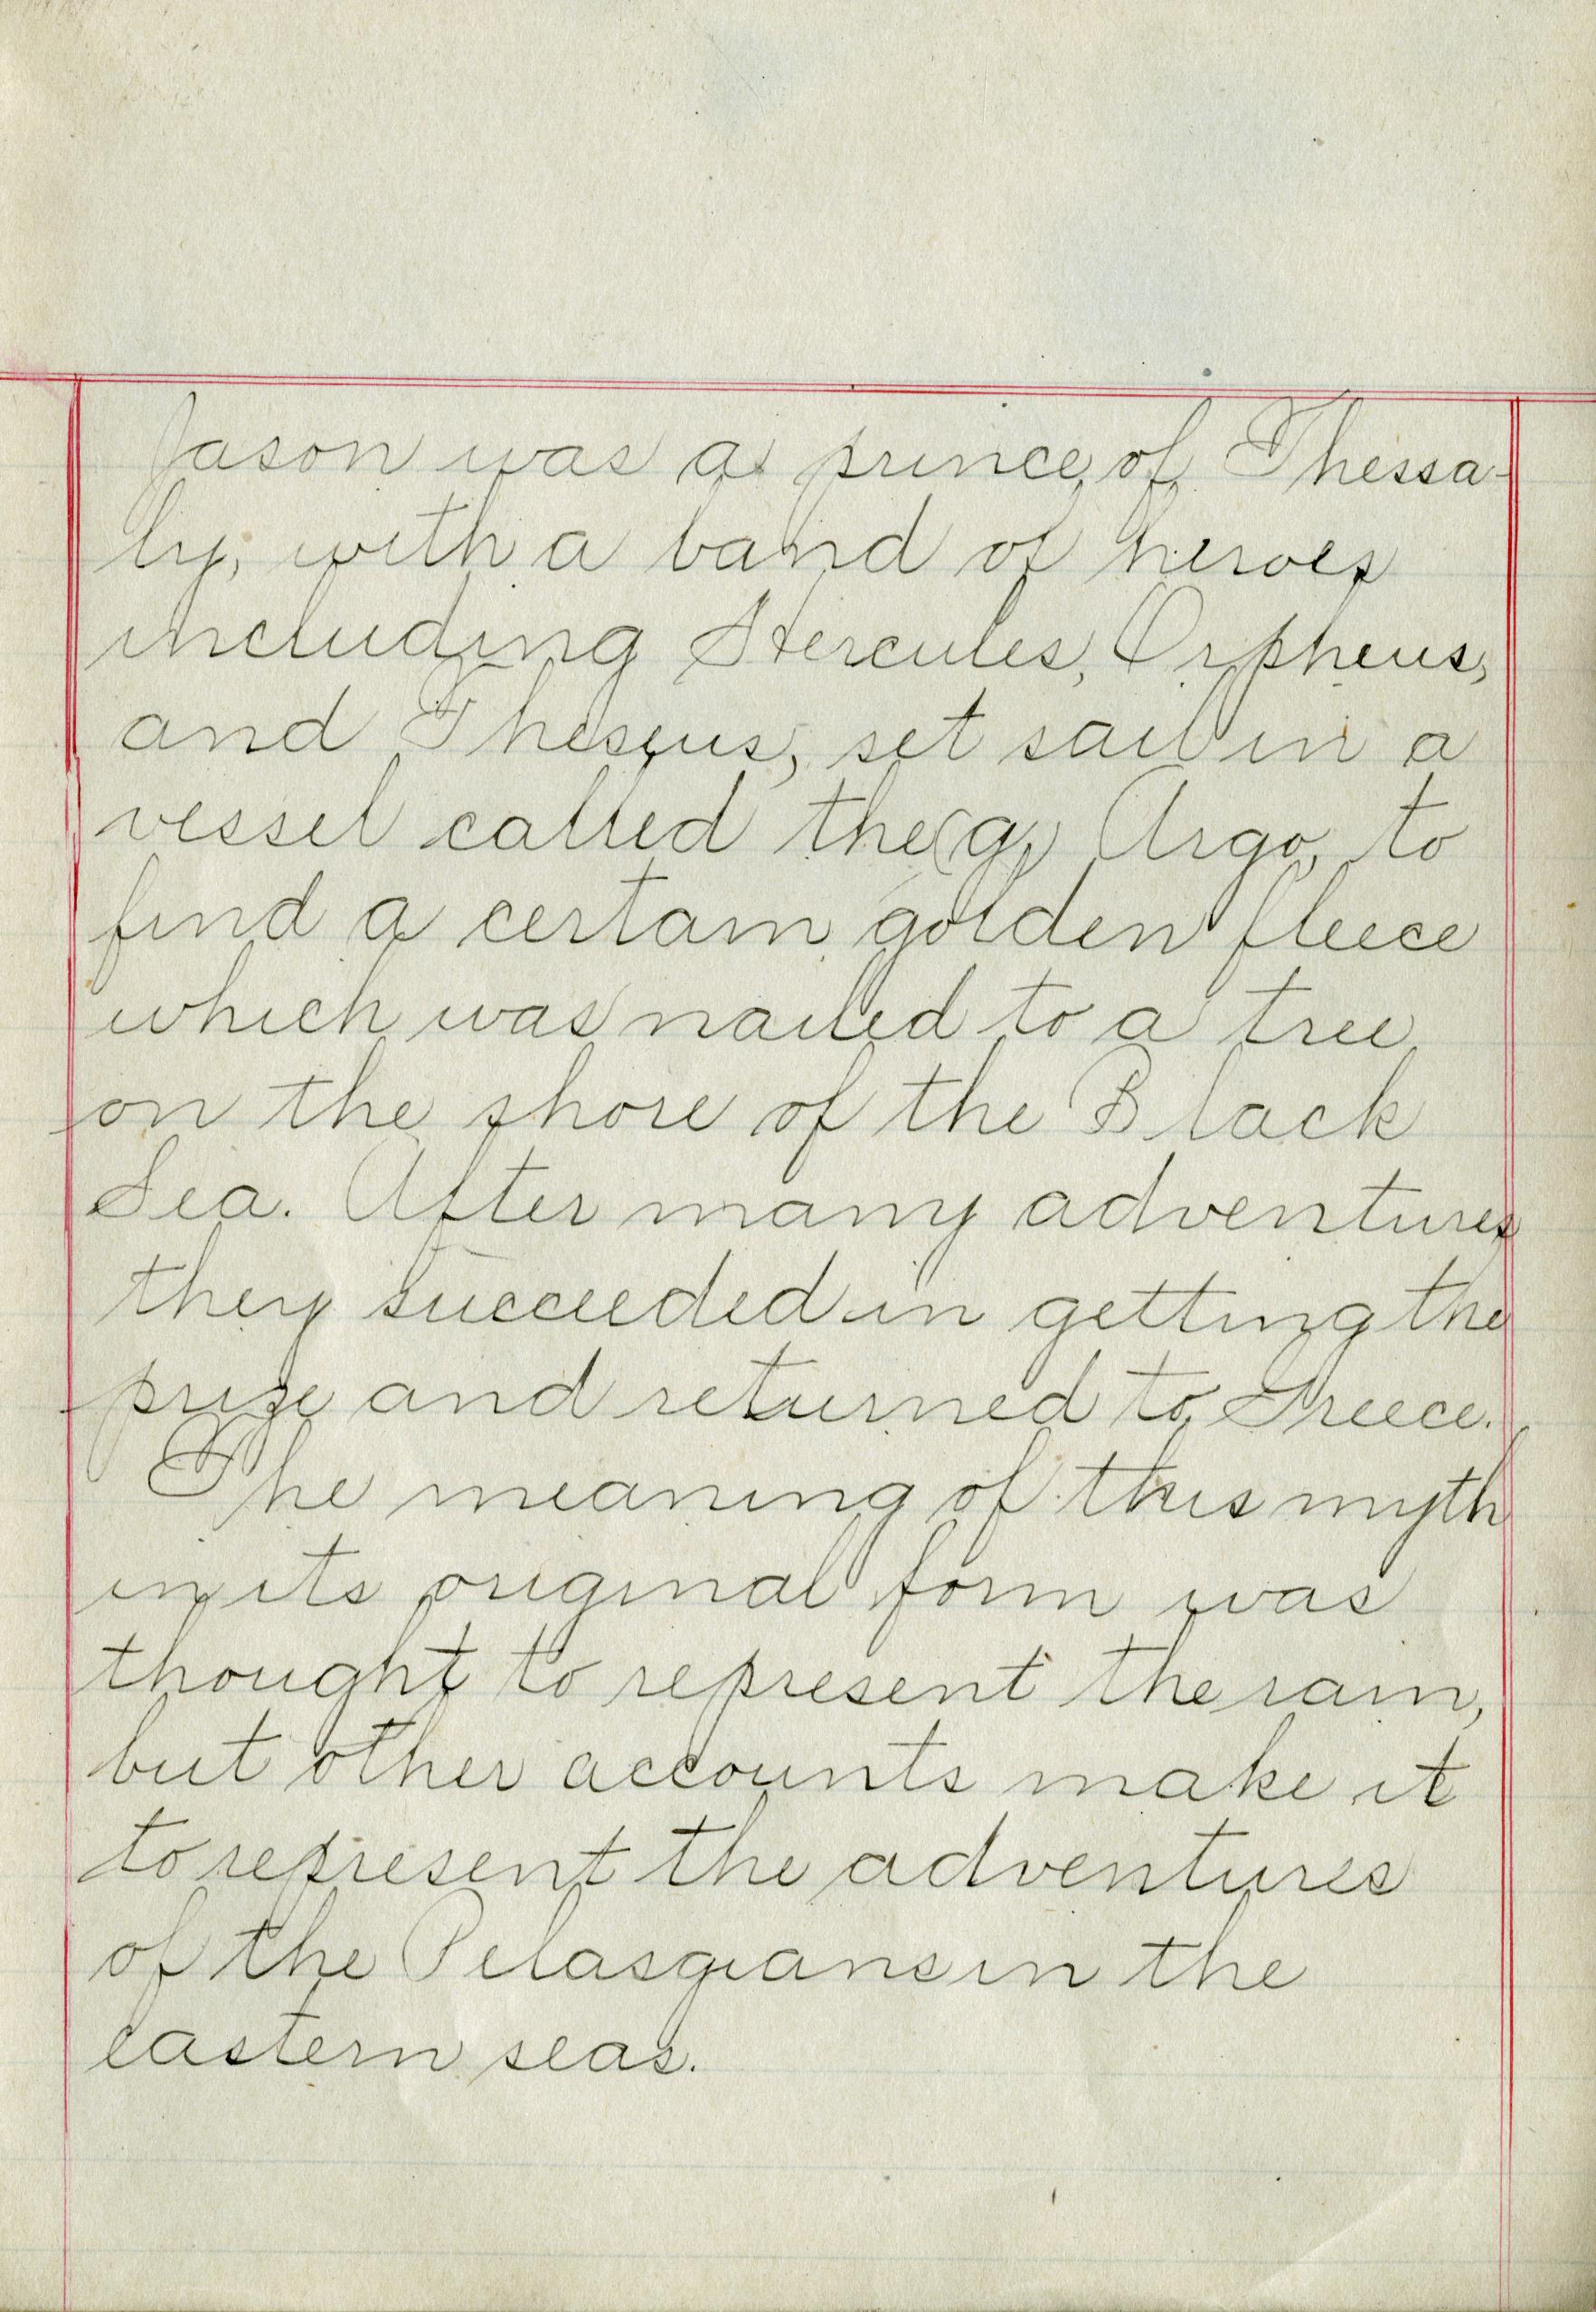 Jason was a prince of Thessa-
ly, with a band of heroes
including Hercules, Orpheus,
and Theseus, set sail in a
vessel called the (g) Argo, to
find a certain golden fleece
which was nailed to a tree
on the shore of the Black
Sea. After many adventures
they succeeded in getting the
prize and returned to Greece.
The meaning of this myth
in its original form was
thought to represent the rain,
but other accounts make it
to represent the adventures
of the Pelasgians in the
eastern seas.